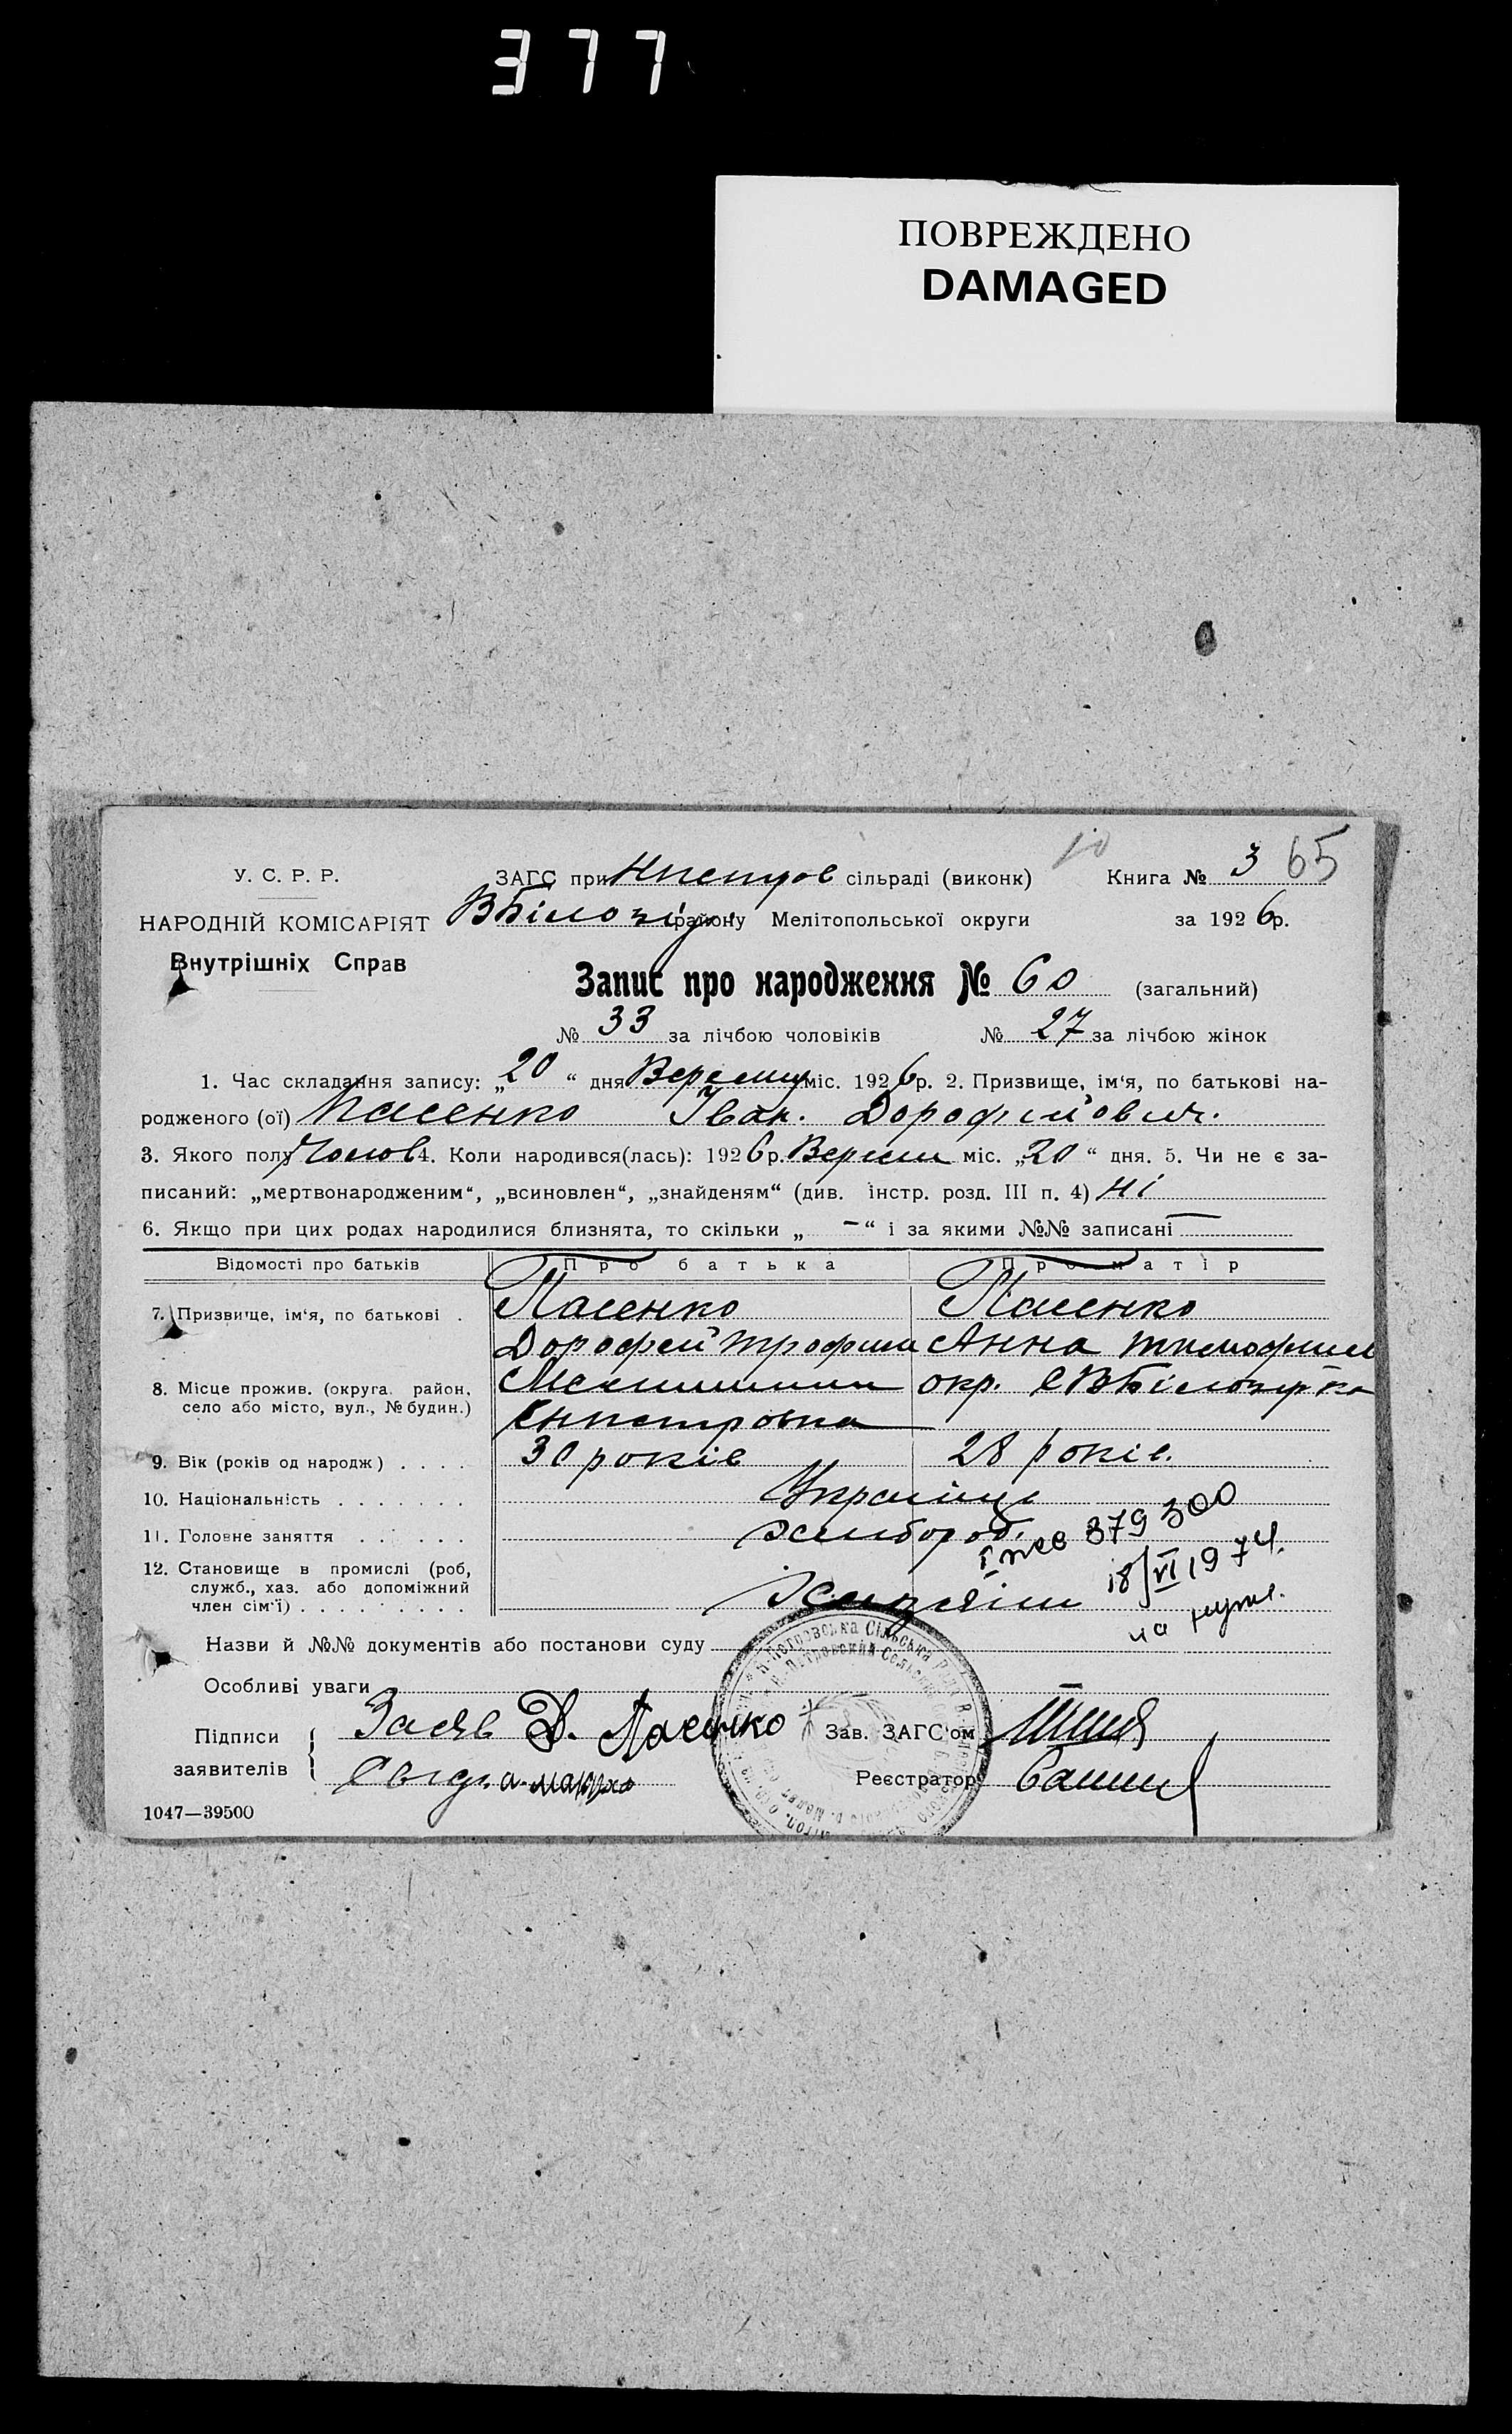 377
ПОВРЕЖДЕНО
DAMAGED
У. С. Р. Р. ЗАГС при Нпетров сільраді (виконк) 10 Книга № 3 65
НАРОДНІЙ КОМІСАРІЯТ ВБілозір району Мелітопольської округи за 1926 р.
Внутрішніх Справ
Запис про народження № 60 (загальний)
№ 33 за лічбою чоловіків № 27 за лічбою жінок
1. Час складання запису: „20“ дня міс. 1926 р. 2. Призвище, ім'я, по батькові на-
родженого (ої) Пасенко Іван. Дорофійович.
3. Якого полу Чолов 4. Коли народився(лась): 1926 р. міс. „20“ дня. 5. Чи не є за-
писаний: „мертвонародженим“, „всиновлен“, „знайденям“ (див. інстр. розд. III п. 4) Ні
6. Якщо при цих родах народилися близнята, то скільки „ — “ і за якими №№ записані —
Відомості про батьків Про батька Про матір
7. Призвище, ім'я, по батькові . Пасенко Пасенко
Дорофей Трофим Анна Тимофіев
8. Місце прожив. (округа, район, окр. ВБілозірка
село або місто, вул., № будин.) Нпетровка
9. Вік (років од народж) . . . . 30 років 28 років.
10. Національність . . . . . . . Українці
11. Головне заняття . . . . . . хлібороб.
379300
12. Становище в промислі (роб,
служб., хаз. або допоміжний
член сім'ї) . . . . . . . . . Хазяїни
18/VI 1974.
Назви й №№ документів або постанови суду
Особливі уваги
Підписи Заяв Д. Пасенко Зав. ЗАГС'ом
заявителів Реєстратор
1047—39500